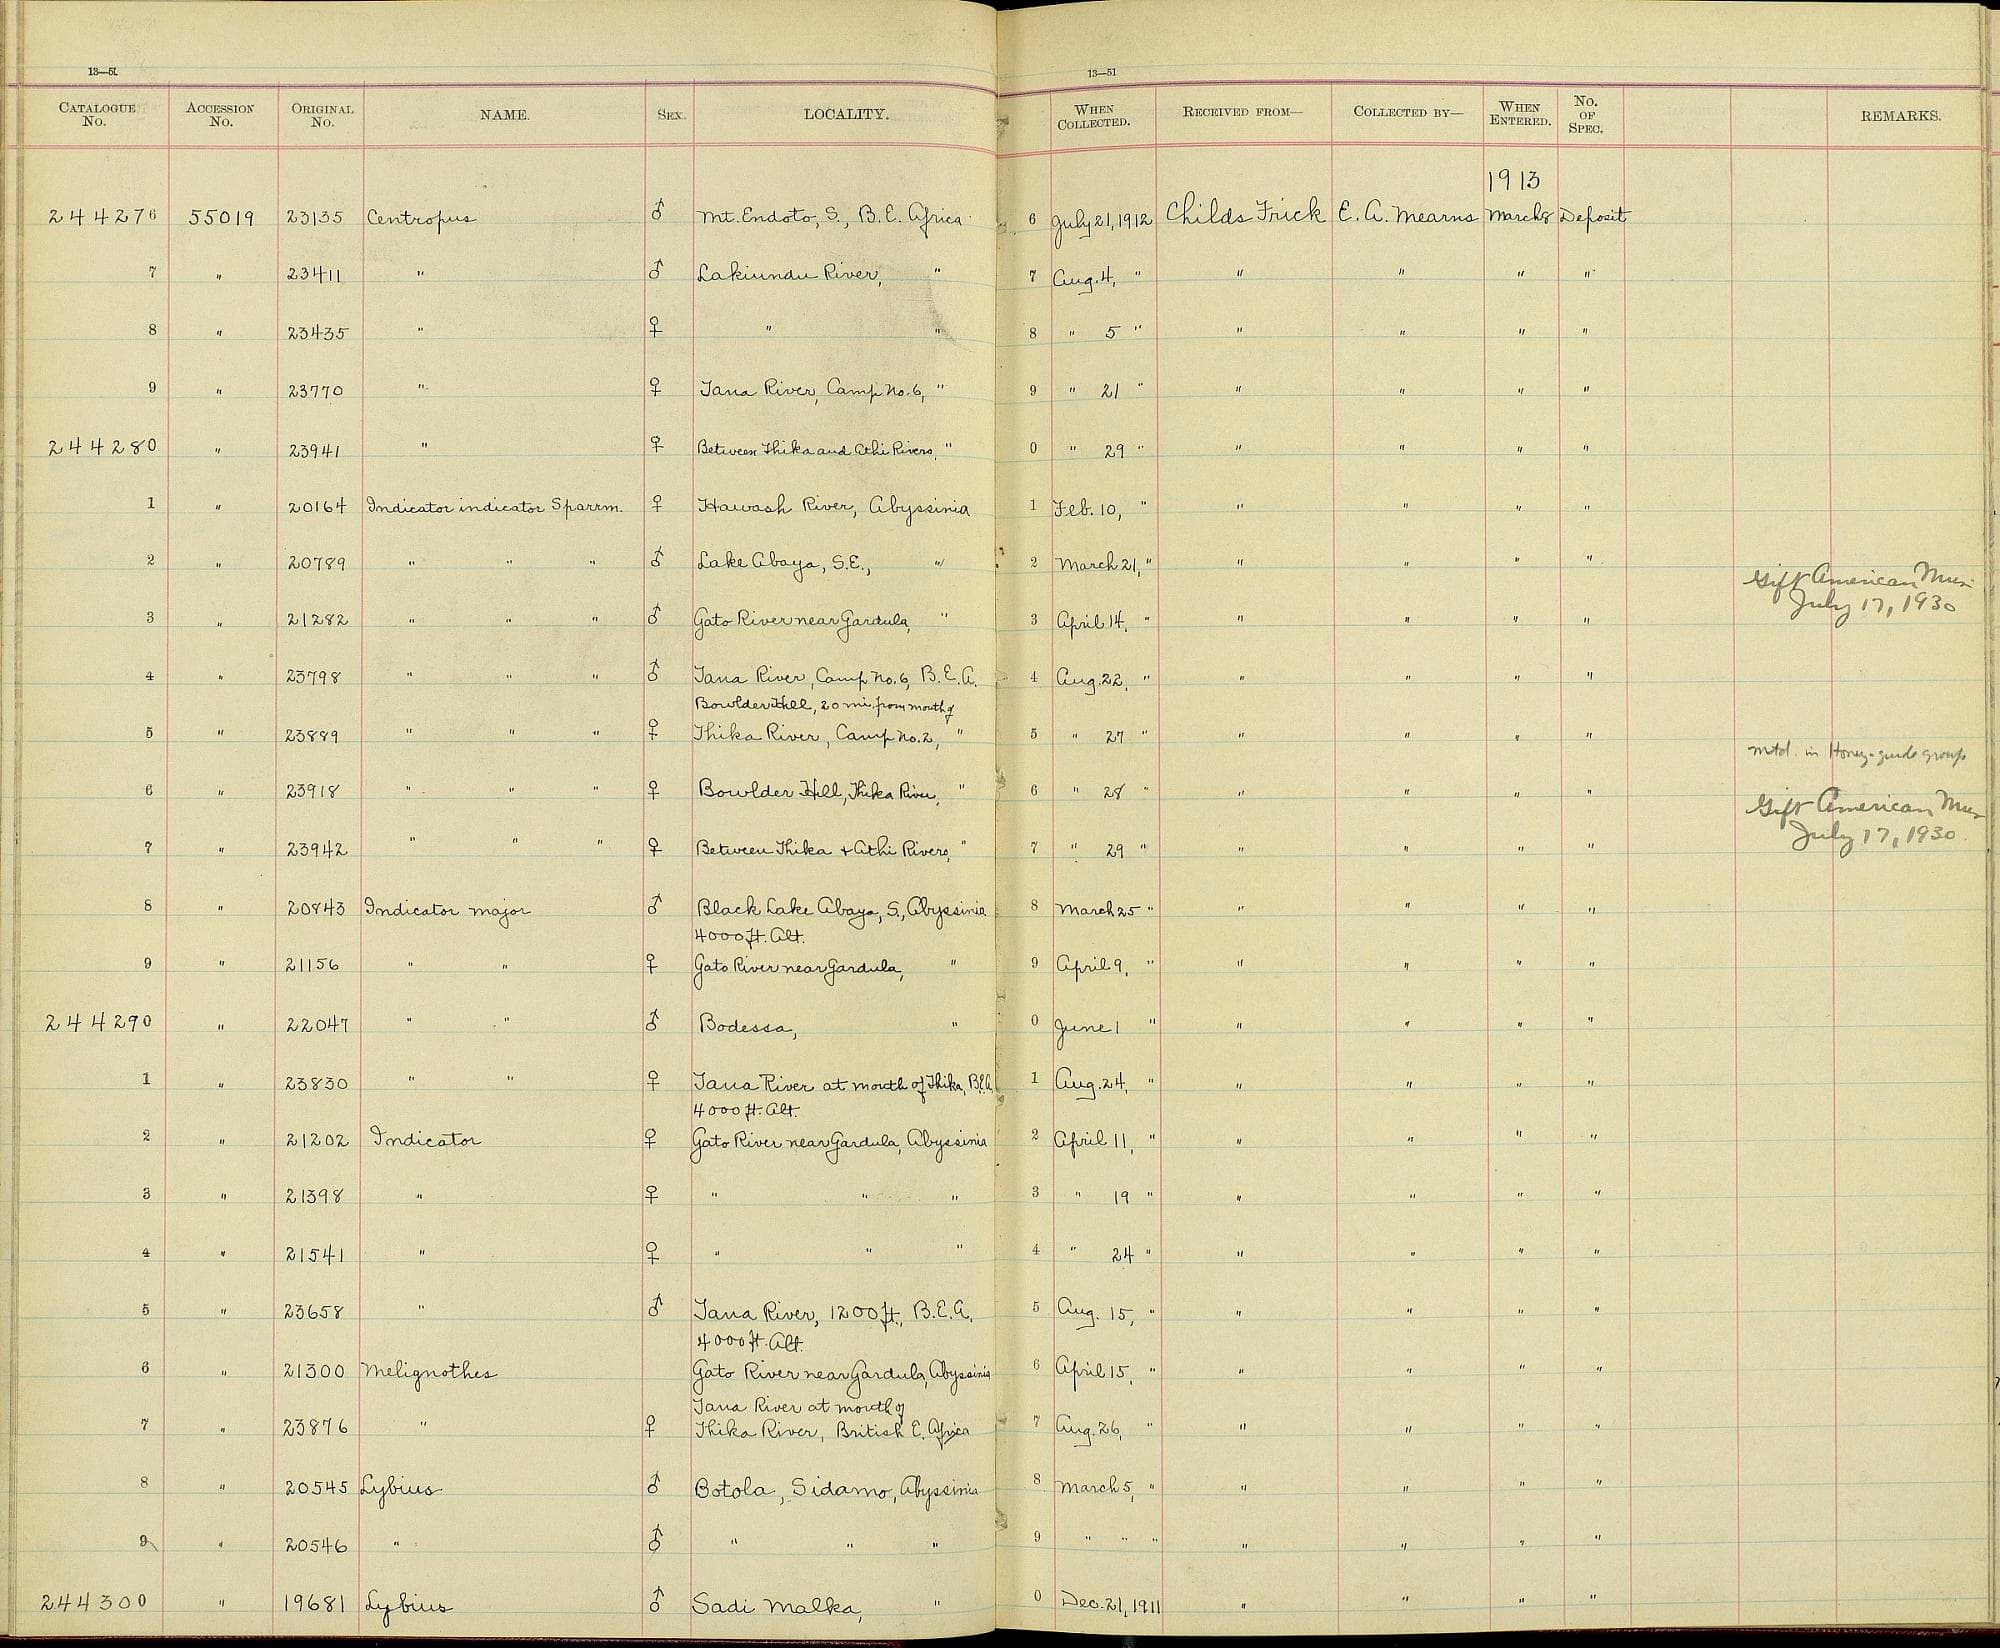 13—51
13—51
CATALOGUE No. ACCESSION No. ORIGINAL No. NAME. SEX. LOCALITY. WHEN COLLECTED. RECEIVED FROM— COLLECTED BY— WHEN ENTERED. No. OF SPEC. REMARKS.
1913
244276 55019 23135 Centropus ♂ Mt. Endoto, S., B. E. Africa 6 July 21, 1912 Childs Frick E. A. Mearns March 8 Deposit
7 " 23411 " ♂ Lakiundu River, " 7 Aug. 4, " " " " "
8 " 23435 " ♀ " " 8 " 5 " " " " "
9 " 23770 " ♀ Tana River, Camp No. 6, " 9 " 21 " " " " "
244280 " 23941 " ♀ Between Thika and Athi Rivers, " 0 " 29 " " " " "
1 " 20164 Indicator indicator Sparrm. ♀ Hawash River, Abyssinia 1 Feb. 10, " " " " "
2 " 20789 " " " ♂ Lake Abaya, S.E., " 2 March 21, " " " " "
Gift American Mus.
July 17, 1930
3 " 21282 " " " ♂ Gato River near Gardula, " 3 April 14, " " " " "
4 " 23798 " " " ♂ Tana River, Camp No. 6, B. E. A. 4 Aug. 22, " " " " "
Bowlder Hill, 20 mi. from mouth of
5 " 23889 " " " ♀ Thika River, Camp No. 2, " 5 " 27 " " " " "
mtd. in Honey-guide group
6 " 23918 " " " ♀ Bowlder Hill, Thika River, " 6 " 28 " " " " "
Gift American Mus
July 17, 1930.
7 " 23942 " " " ♀ Between Thika + Athi Rivers, " 7 " 29 " " " " "
8 " 20843 Indicator major ♂ Black Lake Abaya, S., Abyssinia 8 March 25 " " " " "
4000 ft. Alt.
9 " 21156 " " ♀ Gato River near Gardula, " 9 April 9, " " " " "
244290 " 22047 " " ♂ Bodessa, " 0 June 1 " " " " "
1 " 23830 " " ♀ Tana River at mouth of Thika, B.E.A. 1 Aug. 24, " " " " "
4000 ft. Alt.
2 " 21202 Indicator ♀ Gato River near Gardula, Abyssinia 2 April 11, " " " " "
3 " 21398 " ♀ " " " 3 " 19 " " " " "
4 " 21541 " ♀ " " " 4 " 24 " " " " "
5 " 23658 " ♂ Tana River, 1200 ft., B. E. A. 5 Aug. 15, " " " " "
4000 ft. Alt.
6 " 21300 Melignothes Gato River near Gardula, Abyssinia 6 April 15, " " " " "
Tana River at mouth of
7 " 23876 " ♀ Thika River, British E. Africa 7 Aug. 26, " " " " "
8 " 20545 Lybius ♂ Botola, Sidamo, Abyssinia 8 March 5, " " " " "
9 " 20546 " ♂ " " " 9 " " " " " " "
244300 " 19681 Lybius ♂ Sadi Malka, " 0 Dec. 21, 1911 " " " "